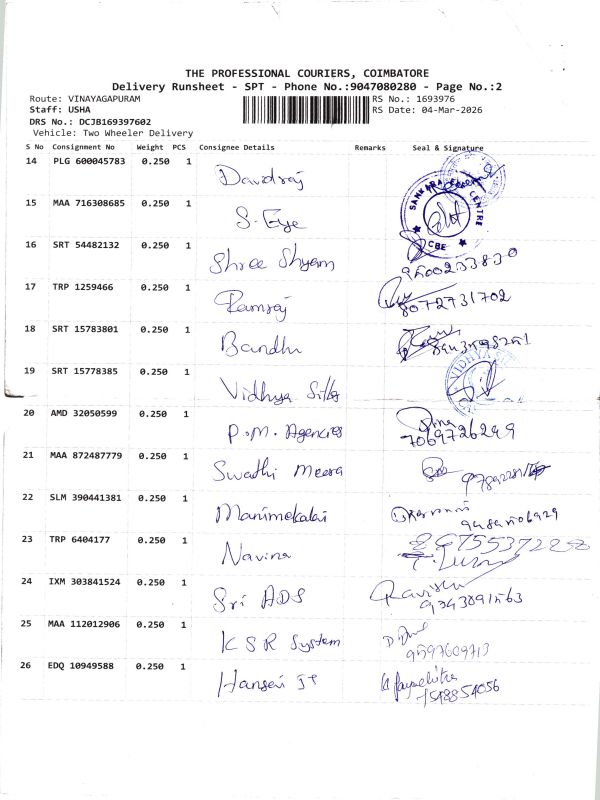 THE PROFESSIONAL COURIERS, COIMBATORE
Delivery Runsheet - SPT - Phone No.:9047080280 - Page No.:2
Route: VINAYAGAPURAM RS No.: 1693976
Staff: USHA RS Date: 04-Mar-2026
DRS No.: DCJB169397602
Vehicle: Two Wheeler Delivery
S No Consignment No Weight PCS Consignee Details Remarks Seal & Signature
14 PLG 600045783 0.250 1
SANKARA CENTRE CBE
15 MAA 716308685 0.250 1 S. Eye
16 SRT 54482132 0.250 1 Shree Shyam 9500233830
17 TRP 1259466 0.250 1 Ramraj 8072731702
18 SRT 15783801 0.250 1 Bandhu
19 SRT 15778385 0.250 1 Vidhya Silks VIDHYA
20 AMD 32050599 0.250 1 P.M. Agencies 7069726249
21 MAA 872487779 0.250 1 Swathi Meera
22 SLM 390441381 0.250 1 Manimekalai
23 TRP 6404177 0.250 1 Navina
24 IXM 303841524 0.250 1 Sri ADS
25 MAA 112012906 0.250 1 K S R System 9597609713
26 EDQ 10949588 0.250 1 7548854056